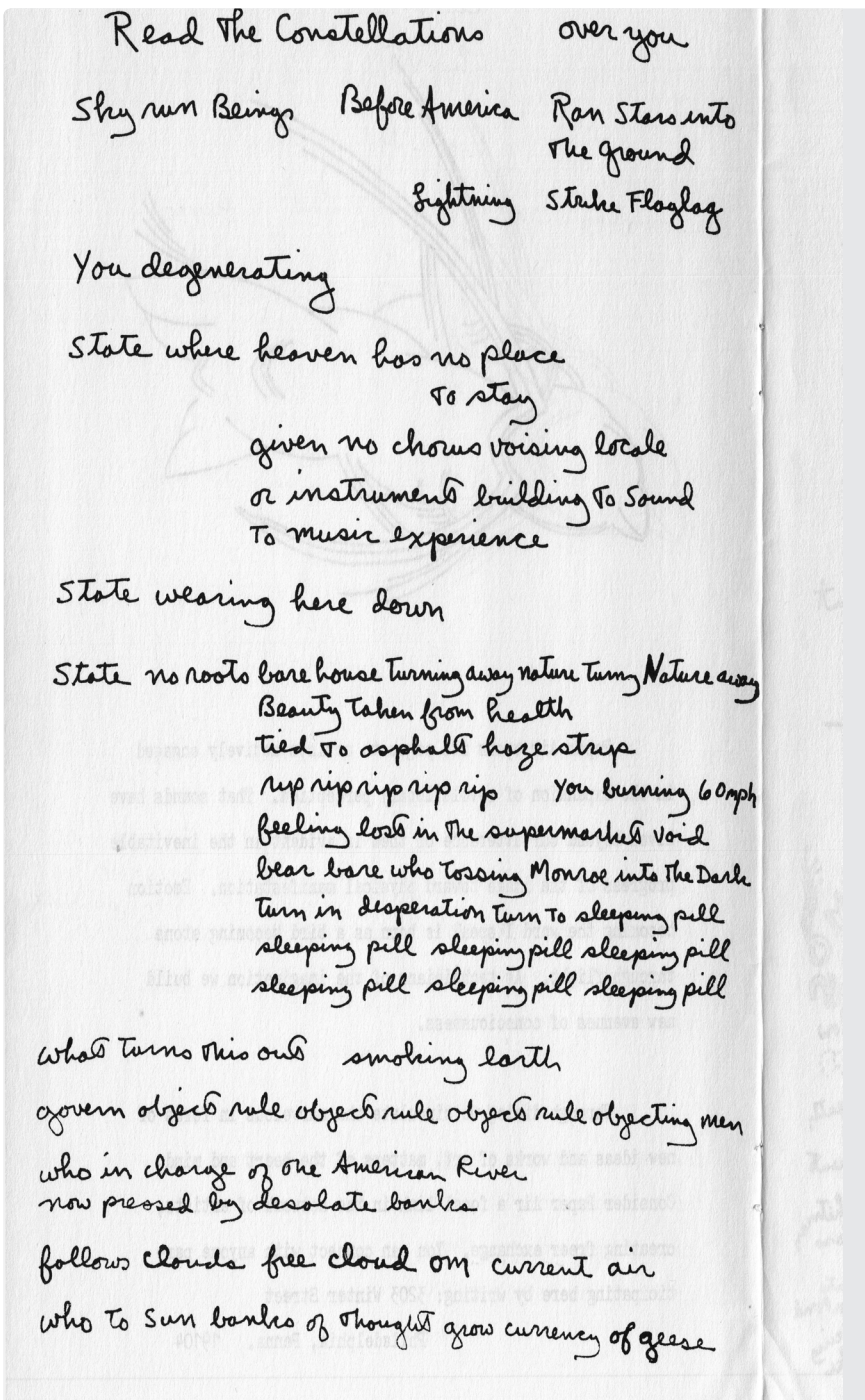 Read The Constellations over you
Sky run Beings Before America Ran Stars into
The ground
Lightning Strike Flaglag
You degenerating
State where heaven has no place
To stay
given no chorus voising locale
or instruments building To Sound
To music experience
State wearing here down
State no roots bare house Turning away nature Turng Nature away
Beauty Taken from health
tied To asphalt haze strip
rip rip rip rip rip You burning 60mph
feeling lost in The supermarket void
bear bare who Tossing Monroe into The Dark
Turn in desperation Turn To sleeping pill
sleeping pill sleeping pill sleeping pill
sleeping pill sleeping pill sleeping pill
what Turns This out smoking earth
govern object rule object rule object rule objecting men
who in charge of one American River
now pressed by desolate banks
follows clouds free cloud om current air
who To Sun banks of Thought grow currency of geese